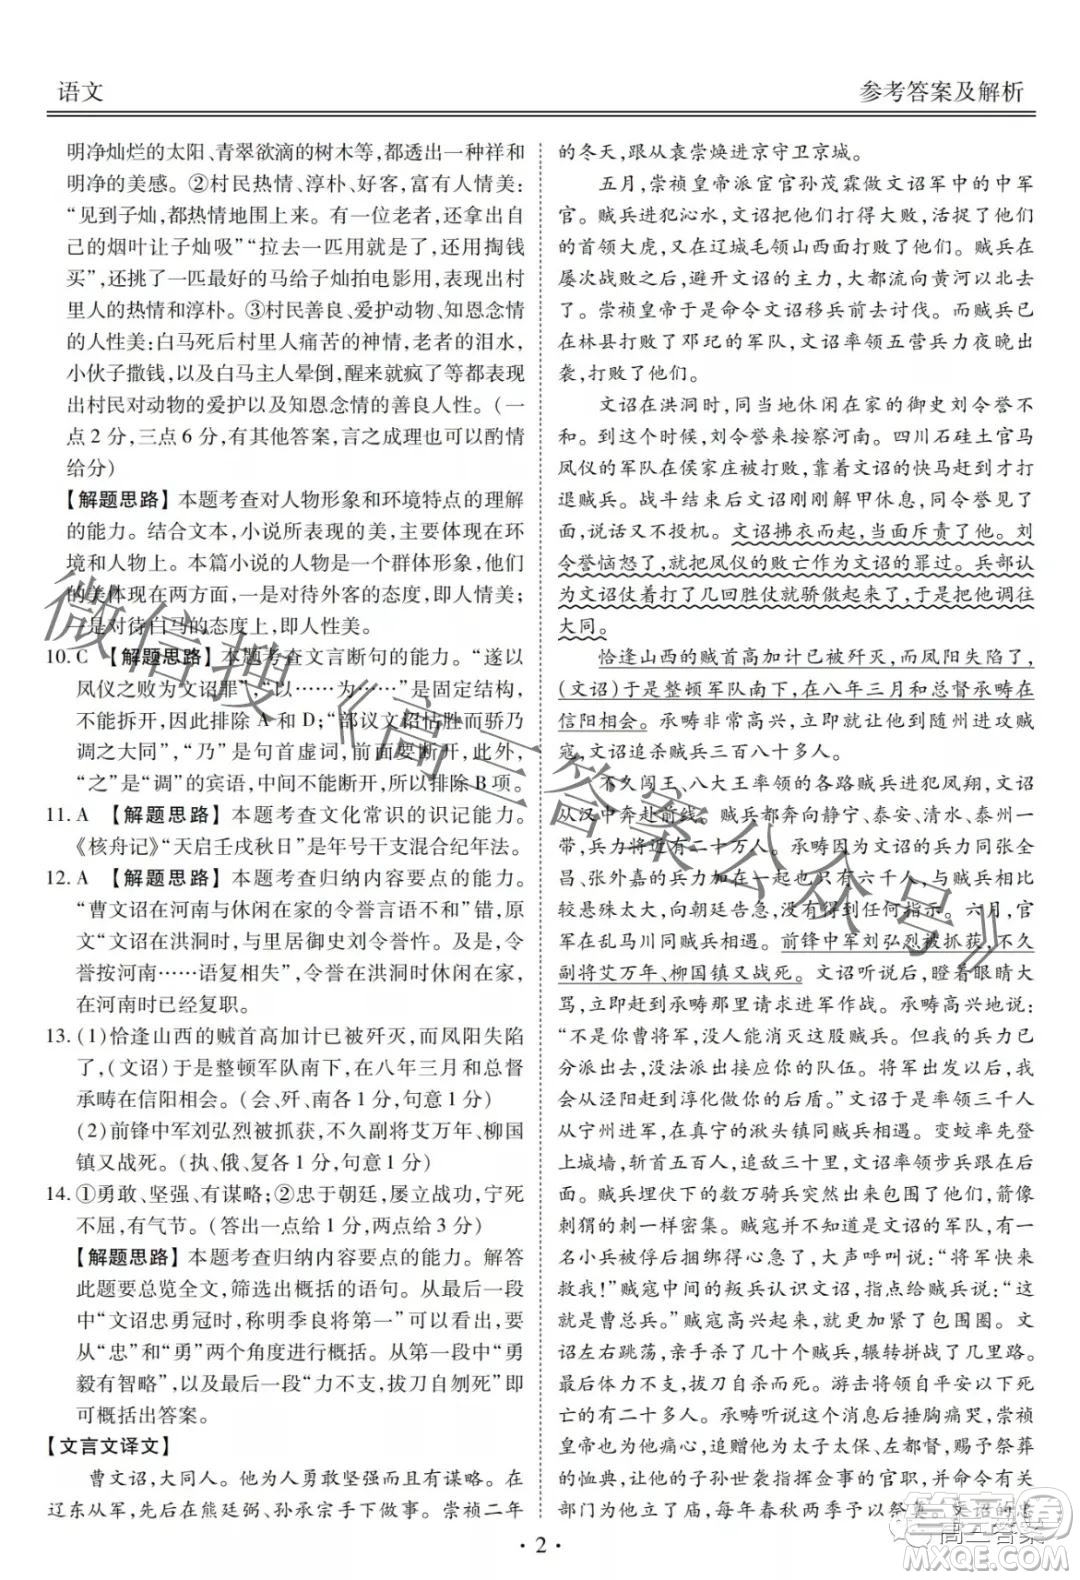 语文
参考答案及解析
明净灿烂的太阳、青翠欲滴的树木等,都透出一种祥和
明净的美感。②村民热情、淳朴、好客,充满人情美:
“见到子灿,都热情地围上来。有一位老者,还拿出自
己的烟叶让子灿吸”“拉去一匹用就行了,还用掏钱
买”,还挑了一匹最好的马给子灿拍电影用,表现出村
里人的热情和淳朴。③村民善良、爱护动物、知恩念情
的人性美:白马死后村里人痛苦的神情,老者的泪水,
小伙子撒钱,以及白马主人晕倒,醒来就疯了等都表现
出村民对动物的爱护以及知恩念情的善良人性。(一
点2分,三点6分,有其他答案,言之成理也可以酌情
给分)
【解题思路】本题考查对人物形象和环境特点的理解
的能力。结合文本,小说所表现的美,主要体现在环
境和人物上。本篇小说的人物是一个群体形象,他们
的美体现在两方面,一是对待外客的态度,即人情美;
一是对待白马的态度上,即人性美。
10. C 【解题思路】本题考查文言断句的能力。“遂以
凤仪之败为文诏罪”,“以……为……”是固定结构,
不能拆开,因此排除A和D;“部议文诏怙胜而骄乃
调之大同”,“乃”是句首虚词,前面要断开,此外,
“之”是“调”的宾语,中间不能断开,所以排除B项。
11. A 【解题思路】本题考查文化常识的识记能力。
《核舟记》“天启壬戌秋日”是年号干支混合纪年法。
12. A 【解题思路】本题考查归纳内容要点的能力。
“曹文诏在河南与休闲在家的令誉言语不和”错,原
文“文诏在洪洞时,与里居御史刘令誉忤。及是,令
誉按河南……语复相失”,令誉在洪洞时休闲在家,
在河南时已经复职。
13. (1)恰逢山西的贼首高加计已被歼灭,而凤阳失陷
了,(文诏)于是整顿军队南下,在八年三月和总督
承畴在信阳相会。(会、歼、南各1分,句意1分)
(2)前锋中军刘弘烈被抓获,不久副将艾万年、柳国
镇又战死。(执、俄、复各1分,句意1分)
14. ①勇敢、坚强、有谋略;②忠于朝廷,屡立战功,宁死
不屈,有气节。(答出一点给1分,两点给3分)
【解题思路】本题考查归纳内容要点的能力。解答
此题要总览全文,筛选出概括的语句。从最后一段
中“文诏忠勇冠时,称明季良将第一”可以概括,要
从“忠”和“勇”两个角度进行概括。从第一段中“勇
毅有智略”,以及最后一段“力不支,拔刀自刎死”即
可概括出答案。
【文言文译文】
曹文诏,大同人。他为人勇敢坚强而且有谋略。在
辽东从军,先后在熊廷弼、孙承宗手下做事。崇祯二年
的冬天,跟从袁崇焕进京守卫京城。
五月,崇祯皇帝派宦官孙茂霖做文诏军中的中军
官。贼兵进犯沁水,文诏把他们打得大败,活捉了他们的
首领大虎,又在辽城毛领山西面打败了他们。贼兵在
屡次战败之后,避开文诏的主力,大都流向黄河以北去
了。崇祯皇帝于是命令文诏移兵前去讨伐。而贼兵已
在林县打败了邓玘的军队,文诏率领五营兵力夜晚出
袭,打败了他们。
文诏在洪洞时,同当地休闲在家的御史刘令誉不
和。到这个时候,刘令誉来按察河南。四川石砫土官马
凤仪的军队在侯家庄被打败,靠着文诏的快马赶到才打
退贼兵。战斗结束后文诏刚刚解甲休息,同令誉见了
面,说话又不投机。文诏拂衣而起,当面斥责了他。刘
令誉恼怒了,于是把凤仪的败亡作为文诏的罪过。兵部认
为文诏仗着打了几回胜仗就骄傲起来,于是把他调往
大同。
恰逢山西的贼首高加计已被歼灭,而凤阳失陷了,
(文诏)于是整顿军队南下,在八年三月和总督承畴在
信阳相会。承畴非常高兴,立即就让他到随州进攻贼
寇,文诏追杀贼兵三百八十多人。
不久闯王、八大王率领的各路贼兵进犯凤翔,文诏
从汉中奔赴前线。贼兵都奔向静宁、泰安、清水、秦州一
带,兵力将近有二十万人。承畴因为文诏的兵力同张全
昌、张外嘉的兵力加在一起也只有六千人,与贼兵相比
较悬殊太大,向朝廷告急,没有得到任何指示。六月,官
军在乱马川同贼兵相遇。前锋中军刘弘烈被抓获,不久
副将艾万年、柳国镇又战死。文诏听说后,瞪着眼睛大
骂,立即赶到承畴那里请求进军作战。承畴高兴地说:
“不是你曹将军,没人能消灭这股贼兵!但是我的兵力
已分派出去,没法派出接应你的队伍。将军出发,我将
从泾阳赶到淳化做你的后盾。”文诏于是率领三千人
从宁州进军,在真宁的湫头镇同贼兵相遇。变蛟率先登
上城墙,斩首五百人,追敌三十里,文诏率领步兵跟在后
面。贼兵埋伏下的数万骑兵突然合围上他们,箭像
刺猬的刺一样密集。贼寇并不知道是文诏的军队,有一
名小兵被俘后捆绑得心急了,大声呼叫说:“将军快来
救我!”贼寇中间的叛兵认识文诏,指点给贼兵说:“这
就是曹总兵。”贼寇高兴起来,更加收紧了包围圈。文
诏左右跳荡,亲手杀了几十个贼兵,辗转拼战了几里路。
文诏体力不支,拔刀自刎而死。游击将领自平安以下死
亡的有二十多人。承畴听到这个消息后捶胸痛哭,崇祯
皇帝也非常哀痛,追赠他为太子太保、左都督,赐予祭葬
的恤典,让他的子孙世袭指挥佥事的官职,并命令有关
部门为他立了庙,每年春秋两季予以祭奠。文诏的忠
· 2 ·
微信搜《高三答案公众号》
答案圈
MXQE.COM
高三答案